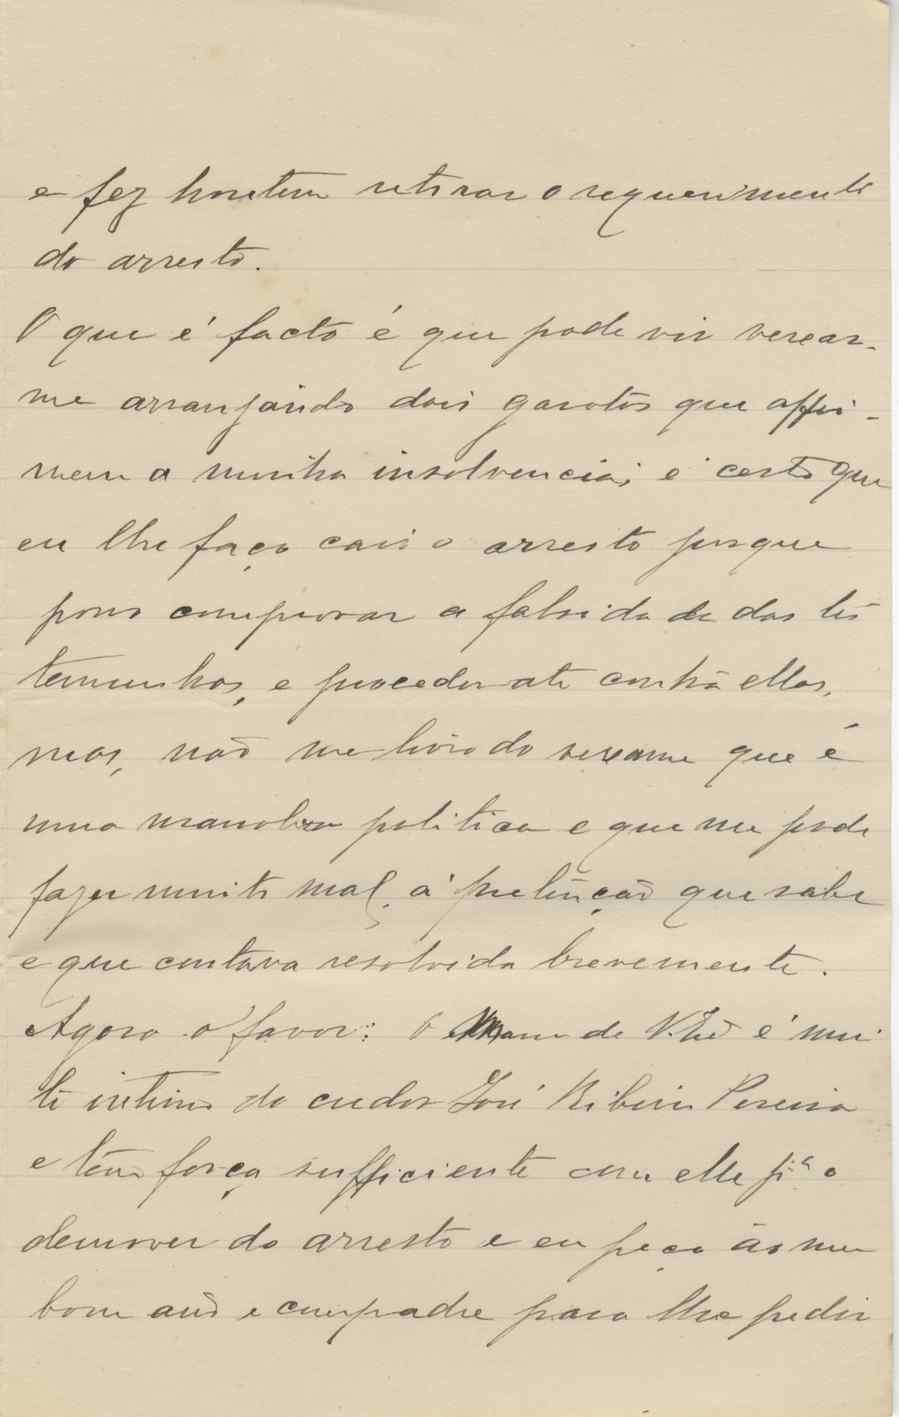 e fez hontem retirar o requerimento
do arresto.
O que é facto é que pode vir vexar-
me arranjando dois garotos que affir-
mem a minha insolvencia; é certo que
eu lhe faço cair o arresto porque
posso comprovar a falsidade das tes
temunhas, e proceder até contra ellas,
mas, não me livro do vexame que é
uma manobra politica e que me pode
fazer muito mal á pretenção que sabe
e que contava resolvida brevemente.
Agora o favor: O de é mui
to intimo do credor José Ribeiro Pereira
e tem força sufficiente com elle pª o
demover do arresto e eu peço ao meu
bom am.º e compadre para lhe pedir